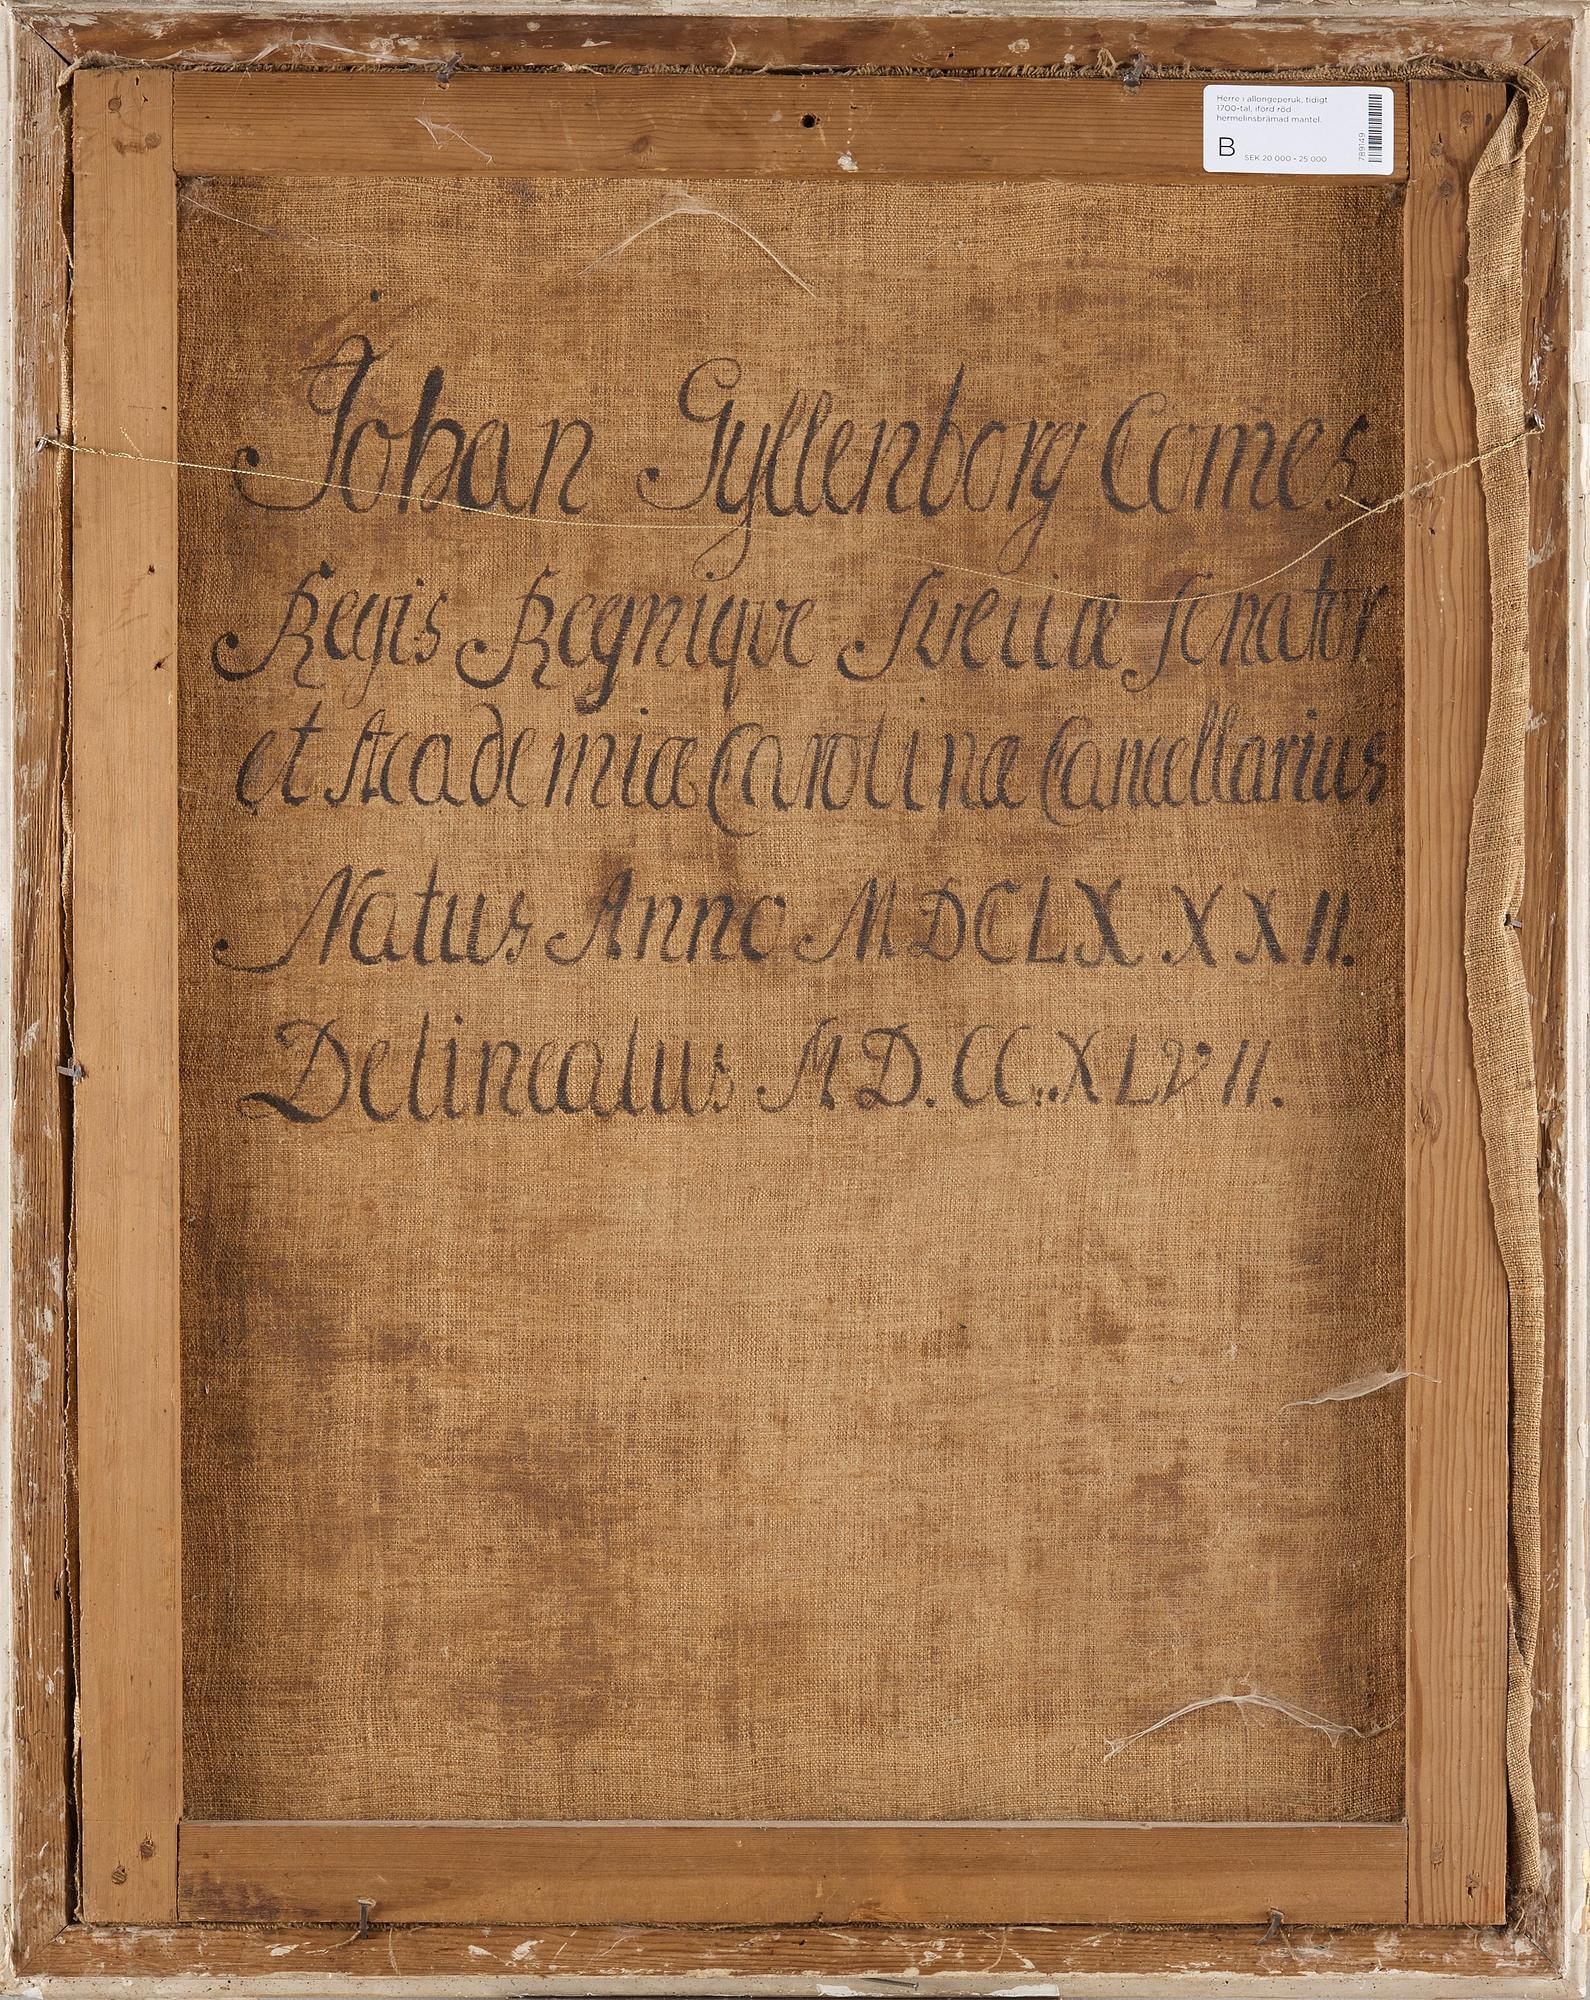 Herre i allongeperuk, tidigt
1700-tal, iförd röd
hermelinsbrämad mantel.
B SEK 20 000 - 25 000
789149
Johan Gyllenborg Comes.
Regis Regnique Sveciæ Senator
et Academiæ Carolinæ Cancellarius
Natus Anno MDCLXXXII.
Delineatus MD.CC.XLVII.